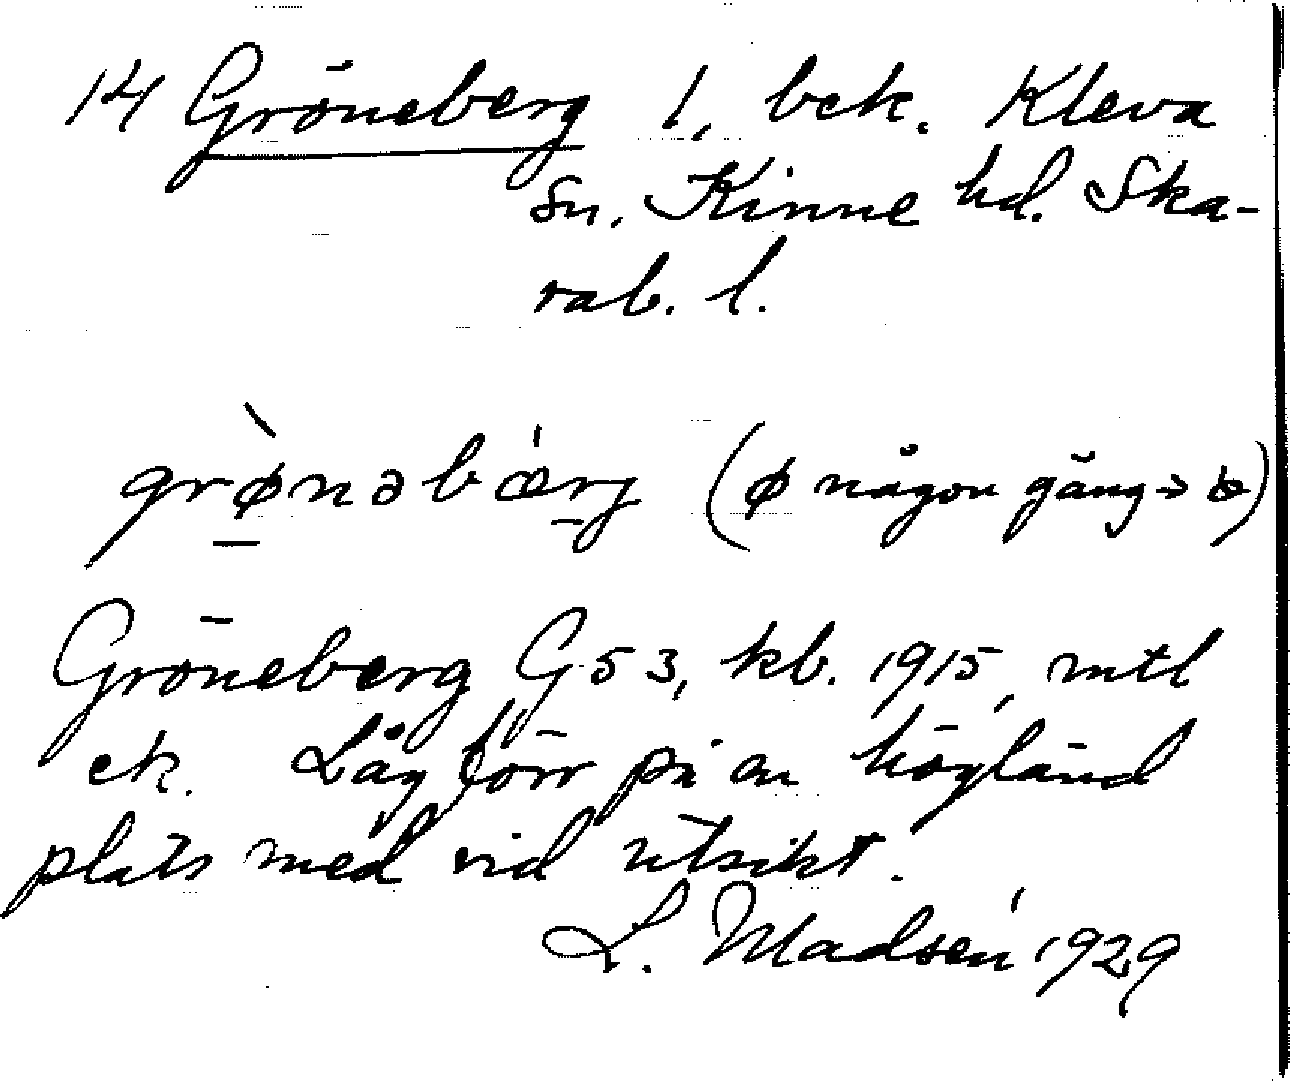 14 Gröneberg 1, bek. Kleva
sn. Kinne hd. Ska-
rab. l.
grø̀nəbærg (ø någon gång → )
Gröneberg G 53, kb. 1915, mtl
ek. Låg förr på en högländ
plats med vid utsikt.
L. Madsén 1929